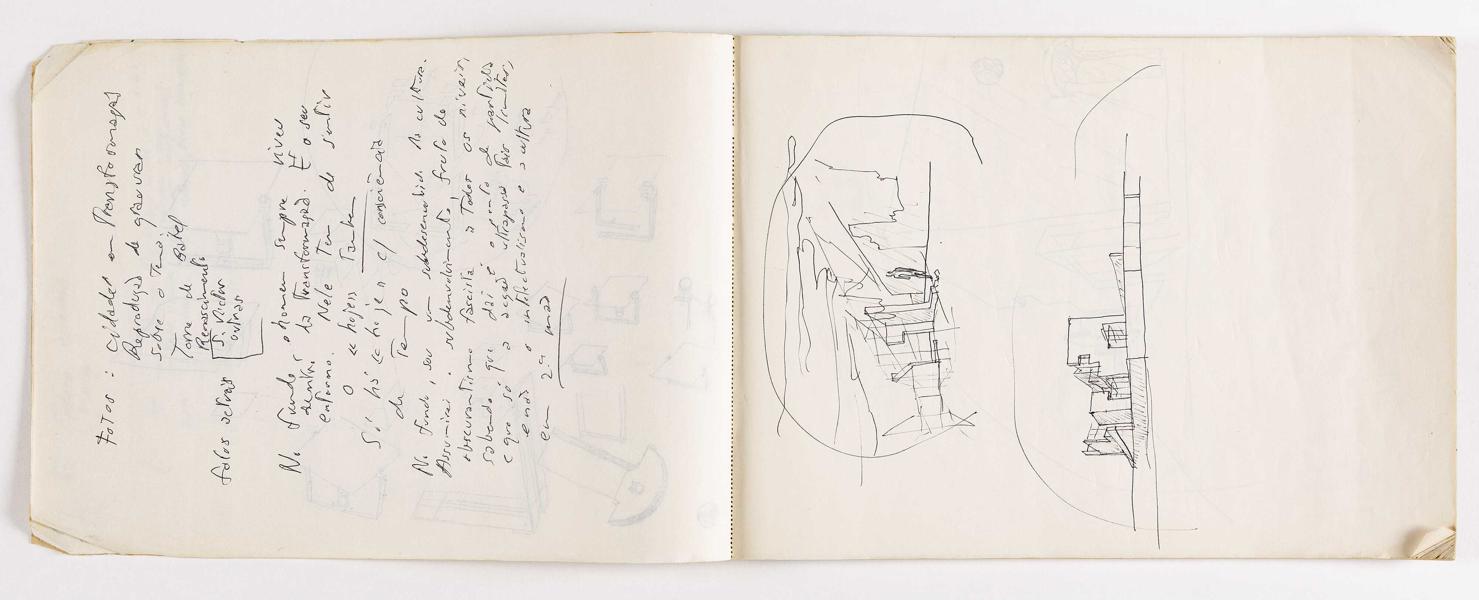 Fotos: Cidades em Transformação
Reprodução de gravuras
sobre o Tema:
Torre de Babel
Renascimento
S. Victor
outras
fotos actuais
No fundo o homem sempre viveu
dentro da transformação. É o seu
entorno. Nele Tem de sentir
o "hoje" também
Só há "hoje" c/ consciência
de Tempo
No fundo, sou um subdesenvolvido da cultura.
Assumirei o subdesenvolvimento, fruto do
obscurantismo fascista a Todos os níveis,
sabendo que daí é o ponto de partida
e que só a acção ultrapassa tais limites,
e não o intelectualismo e a cultura
em 2.ª mão